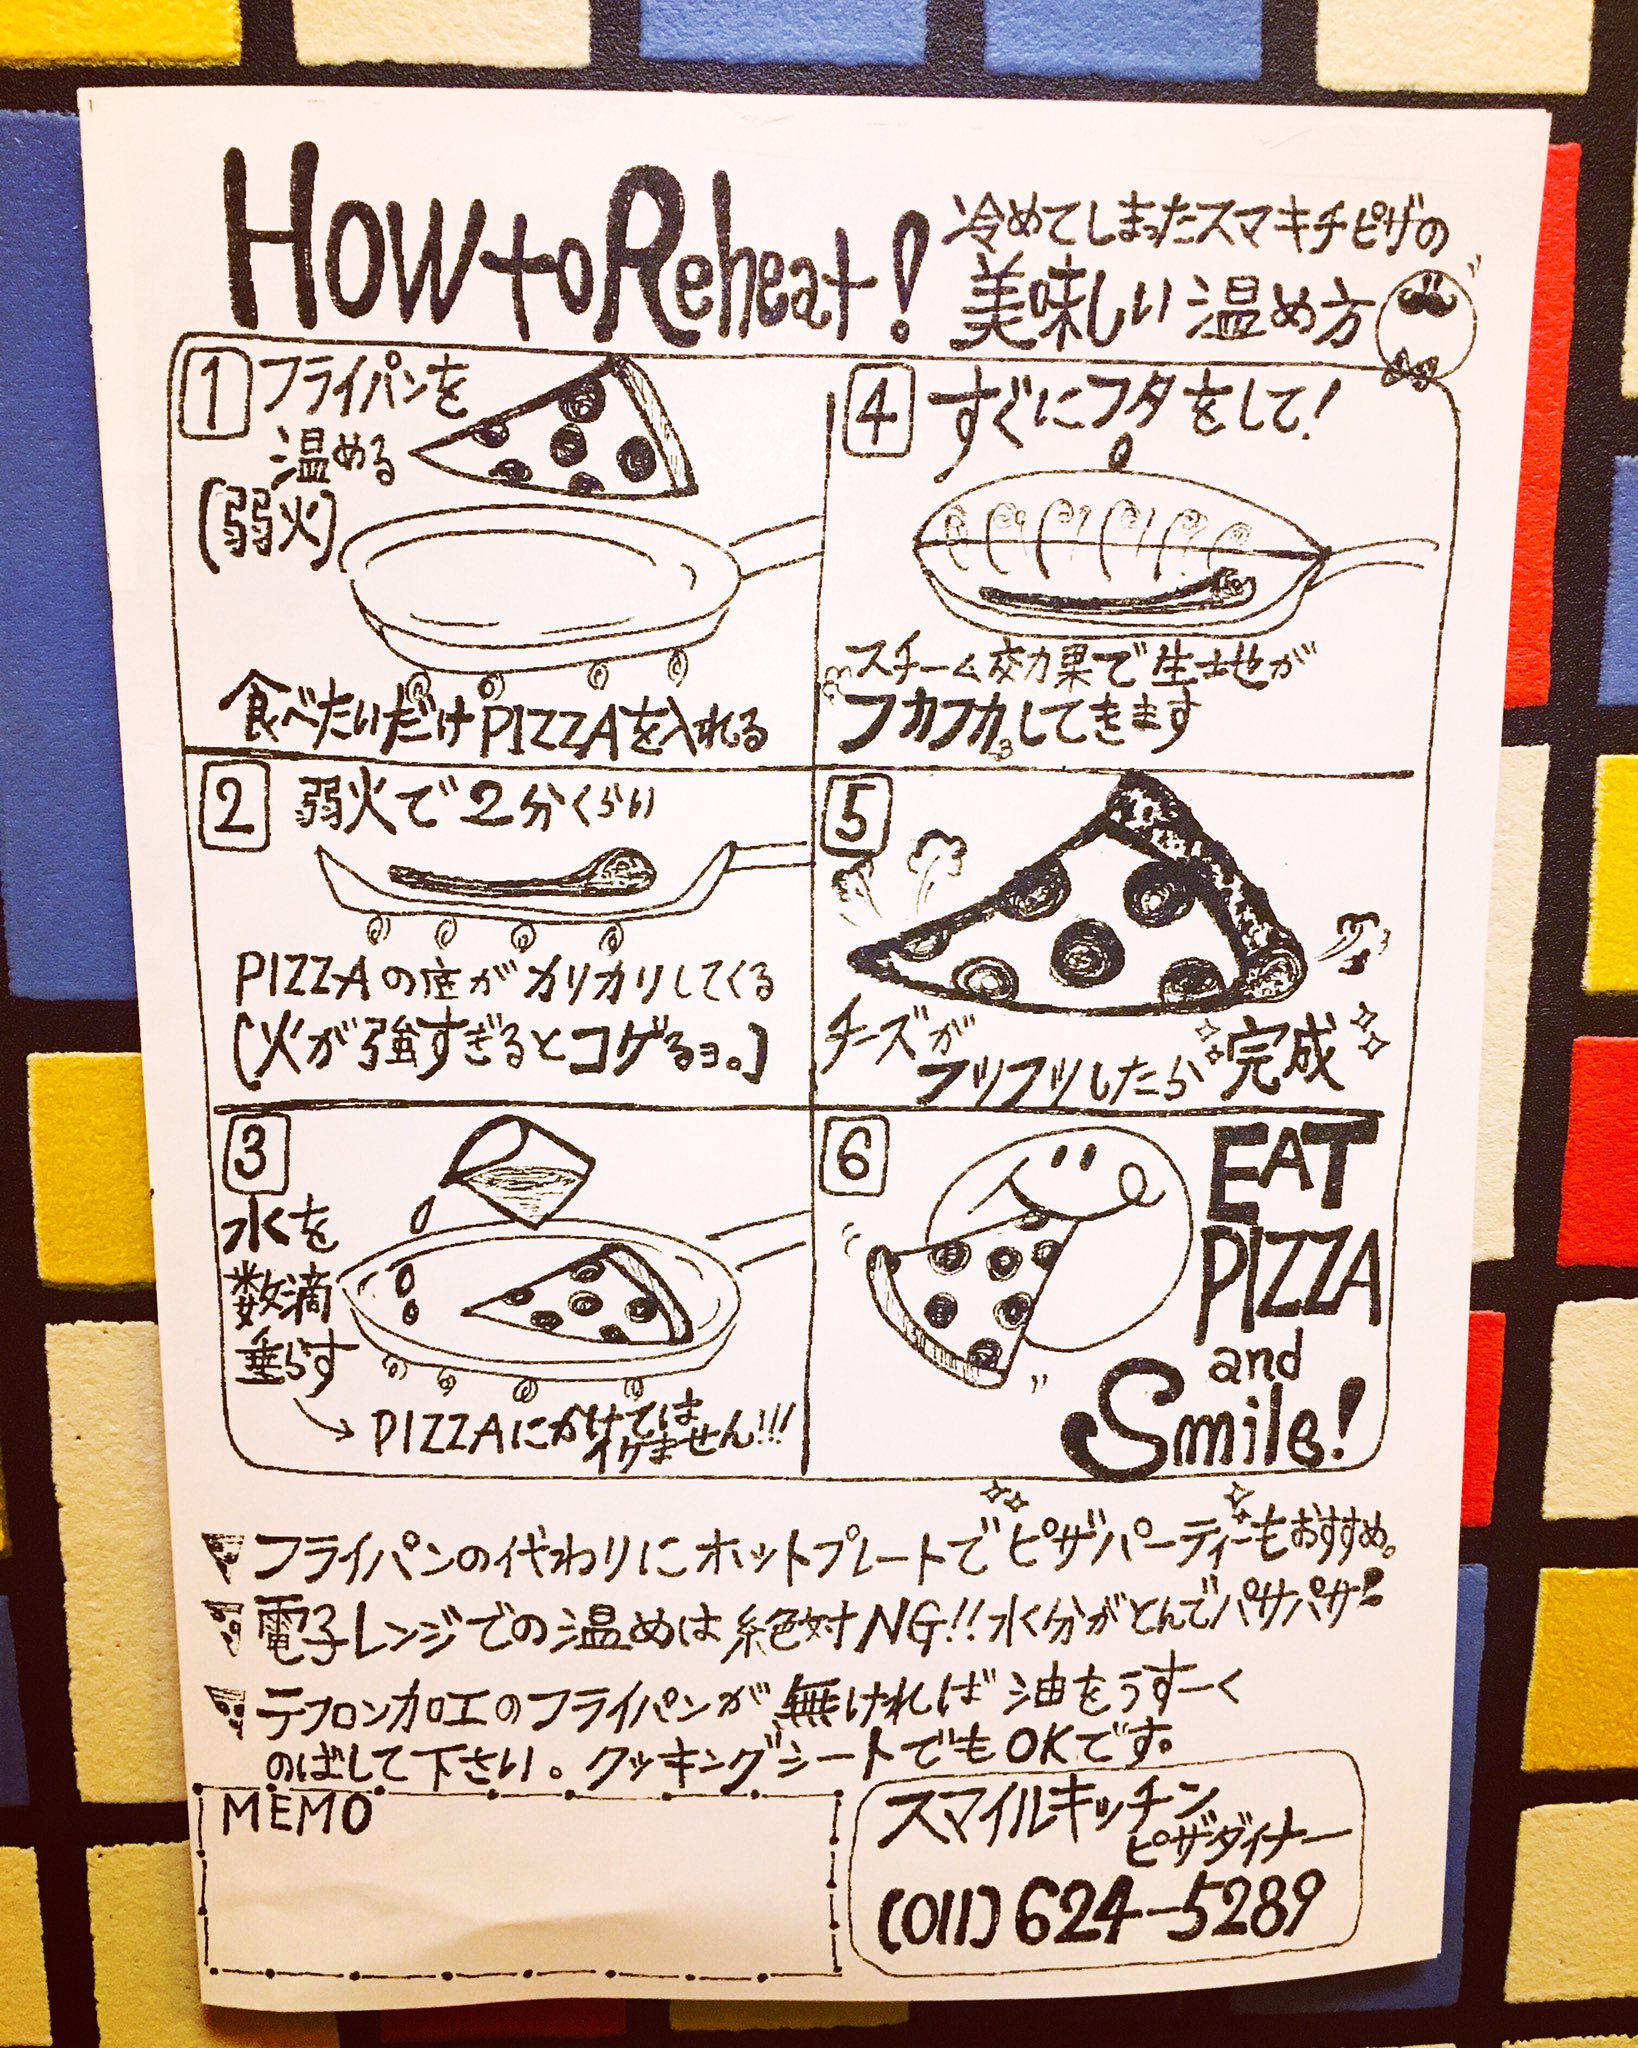 How to Reheat!
冷めてしまったスマキチピザの
美味しい温め方
1
フライパンを
温める
(弱火)
食べたいだけPIZZAを入れる
2
弱火で2分くらい
PIZZAの底がカリカリしてくる
(火が強すぎるとコゲるヨ。)
3
水を
数滴
垂らす
PIZZAにかけては
イケません!!!
4
すぐにフタをして!
スチーム効果で生地が
フカフカしてきます
5
チーズが
フツフツしたら完成
6
EAT
PIZZA
and
Smile!
フライパンの代わりにホットプレートでピザパーティーもおすすめ。
電子レンジでの温めは絶対NG!!水分がとんでパサパサ!
テフロン加工のフライパンが無ければ油をうすーく
のばして下さい。クッキングシートでもOKです。
MEMO
スマイルキッチン
ピザダイナー
(011)624-5289